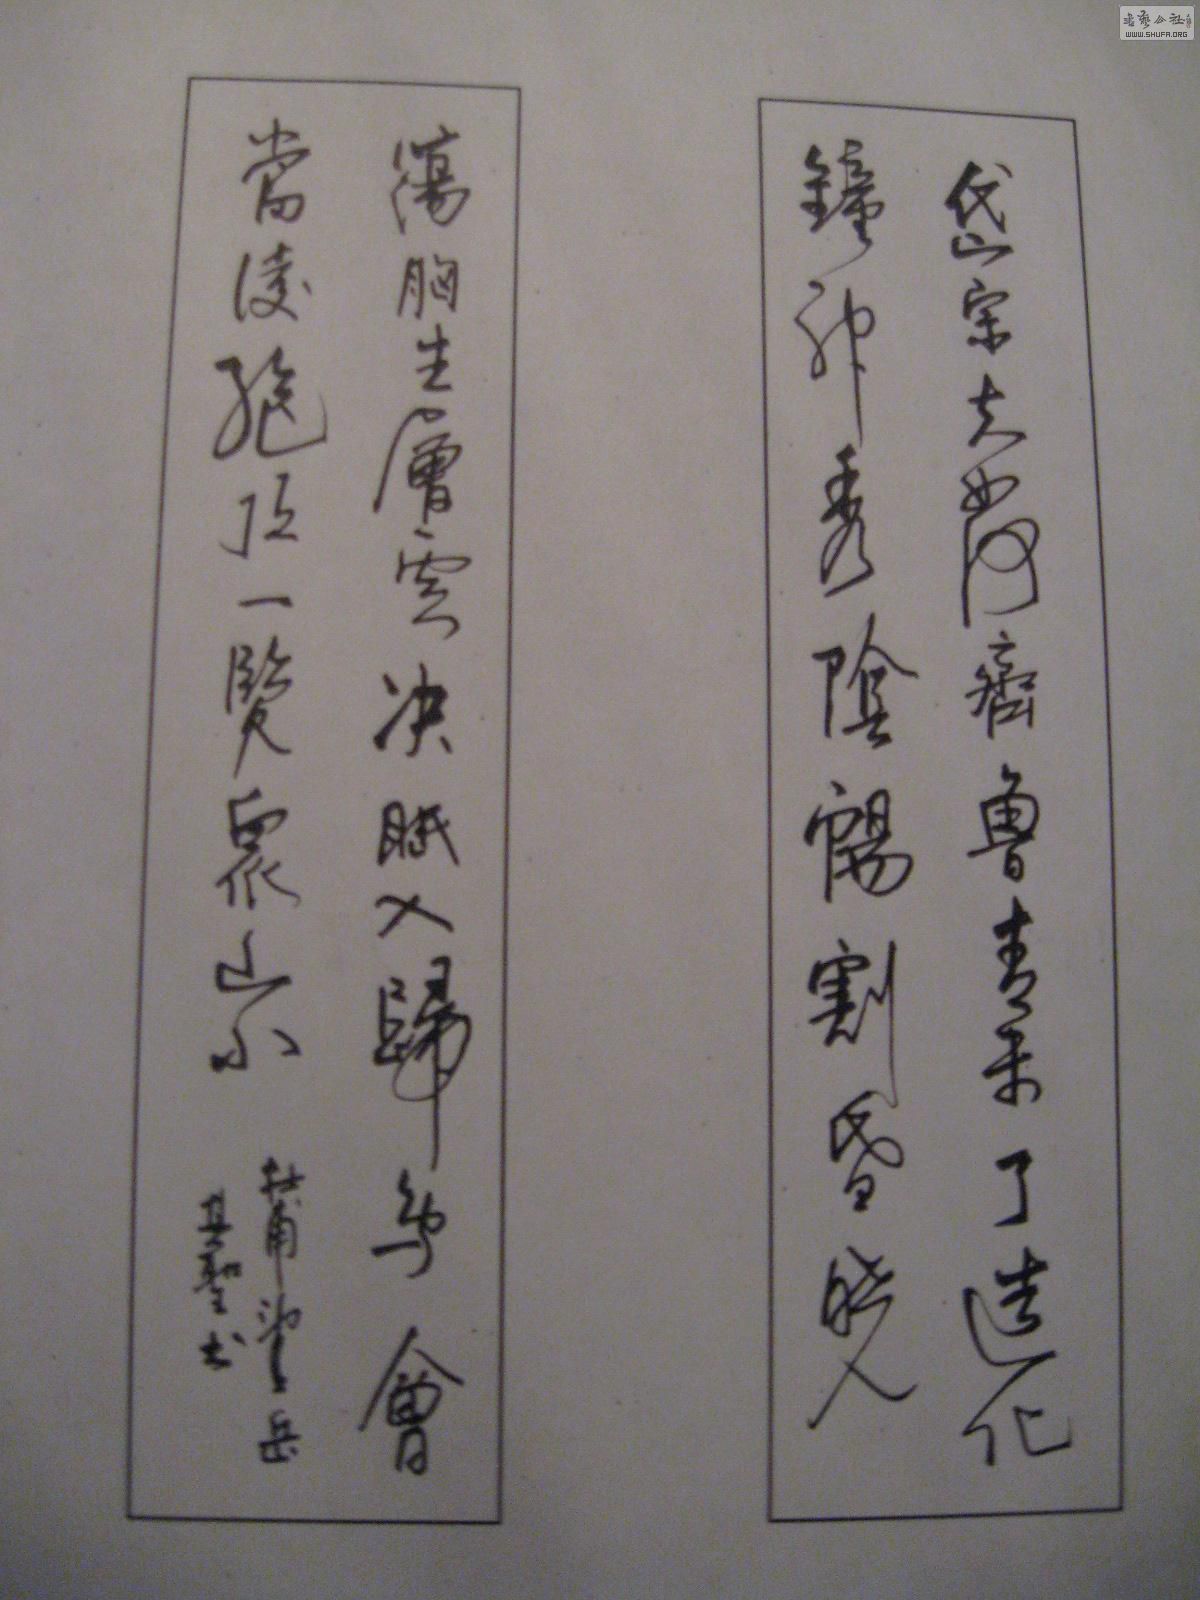 岱宗夫如何齊魯青未了造化
鐘神秀陰陽割昏曉
蕩胸生層雲决眦入歸鳥會
當凌絕頂一覽眾山小
杜甫望岳
書藝公社
WWW.SHUFA.ORG